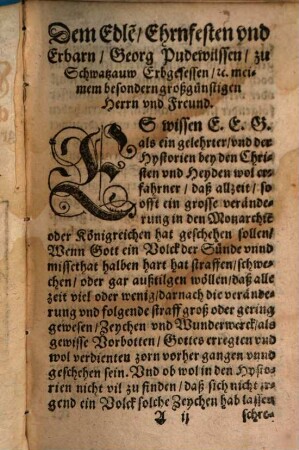 Dem Edlẽ / Ehrnfesten vnd
Erbarn / Georg Pudewilssen / zu
Schwatzauw Erbgesessen / ꝛc. mei-
nem besondern großgünstigen
Herrn vnd Freund.
ES wissen E. E. G.
als ein gelehrter / vnd der
Hystorien bey den Chri-
sten vnd Heyden wol er-
fahrner / daß allzeit / so
offt ein grosse verände-
rung in den Monarchiẽ
oder Königreichen hat geschehen sollen /
Wenn Gott ein Volck der Sünde vnnd
missethat halben hart hat straffen / schwe-
chen / oder gar außtilgen wöllen / daß alle
zeit viel oder wenig / darnach die verände-
rung vnd folgende straff groß oder gering
gewesen / Zeychen vnd Wunderwerck / als
gewisse Vorbotten / Gottes erregten vnd
wol verdienten zorn vorher gangen vnnd
geschehen sein. Vnd ob wol in den Hysto-
rien nicht vil zu finden / daß sich nicht ir-
gend ein Volck solche Zeychen hab lassen
A ij schre-